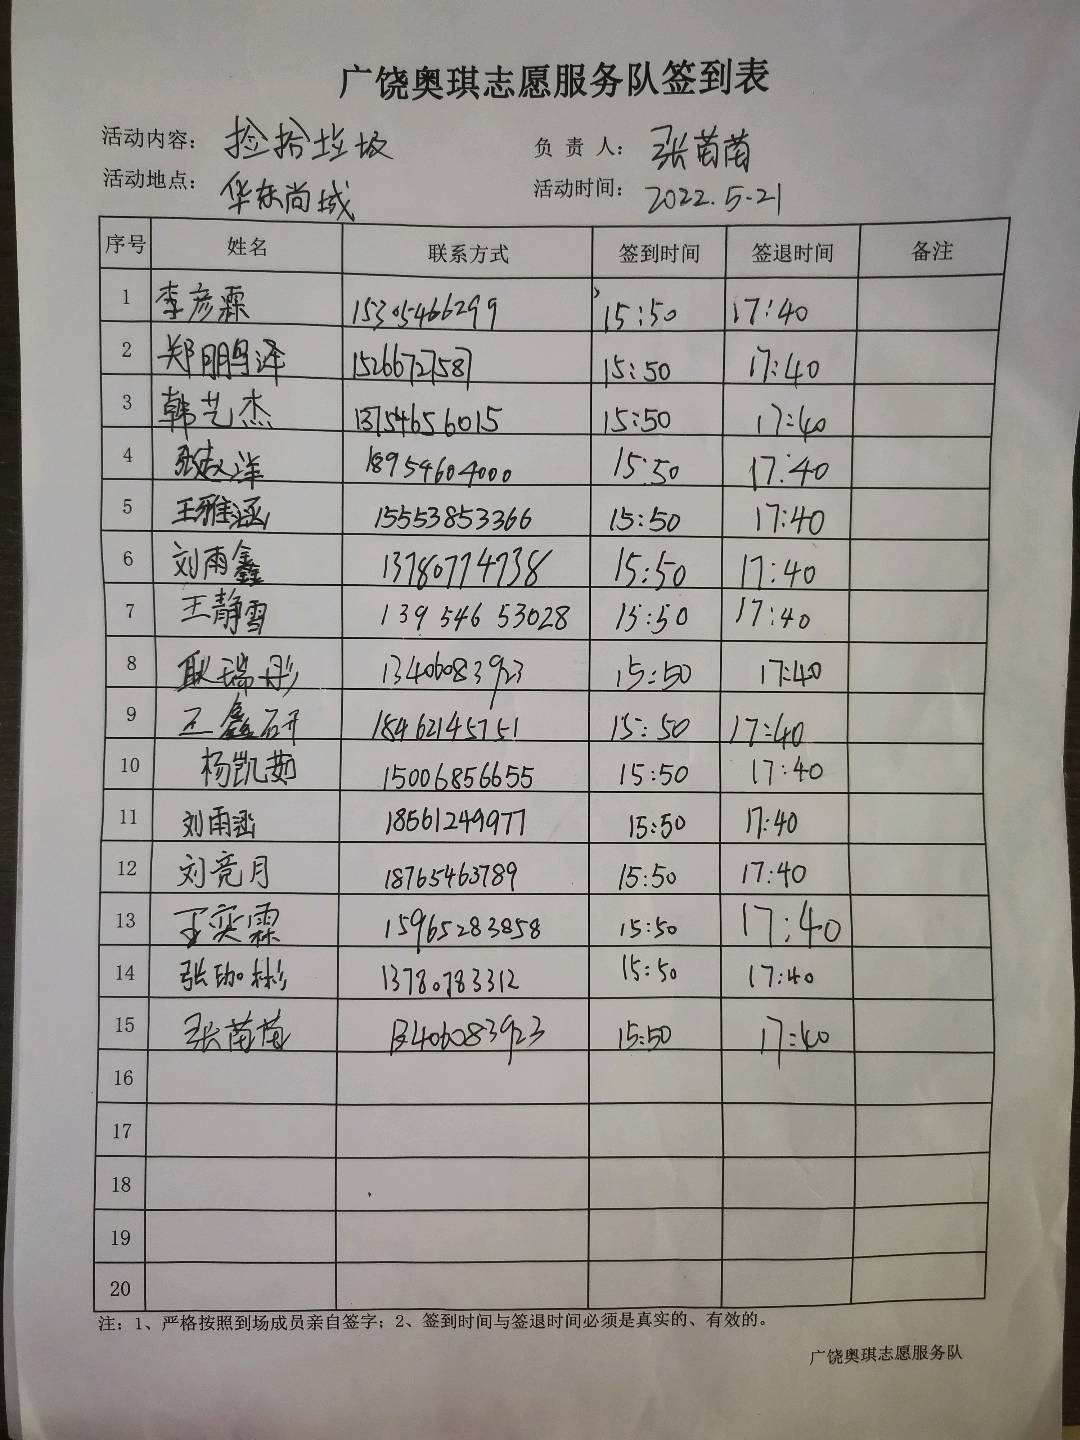 广饶奥琪志愿服务队签到表
活动内容：捡拾垃圾 负责人：张苗苗
活动地点：华东尚城 活动时间：2022.5-21
序号 姓名 联系方式 签到时间 签退时间 备注
1 李彦霖 15305466299 15:50 17:40
2 郑鹏泽 15266727587 15:50 17:40
3 韩艺杰 13754656015 15:50 17:40
4 18954604000 15:50 17:40
5 王雅涵 15553853366 15:50 17:40
6 刘雨鑫 13780774738 15:50 17:40
7 王静雪 139 546 53028 15:50 17:40
8 耿瑞彤 13406083923 15:50 17:40
9 王鑫研 18462145751 15:50 17:40
10 杨凯茹 15006856655 15:50 17:40
11 刘雨涵 18561249977 15:50 17:40
12 刘竞月 18765463789 15:50 17:40
13 王奕霖 15965283858 15:50 17:40
14 张珈彬 13780783312 15:50 17:40
15 张苗苗 13406083923 15:50 17:40
16
17
18
19
20
注：1、严格按照到场成员亲自签字；2、签到时间与签退时间必须是真实的、有效的。
广饶奥琪志愿服务队